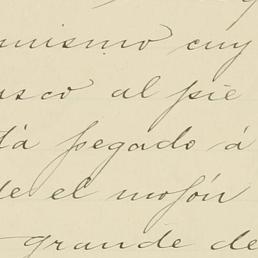 mismo cuy
asco al pie
tá pegado á
de el mojón
grande de